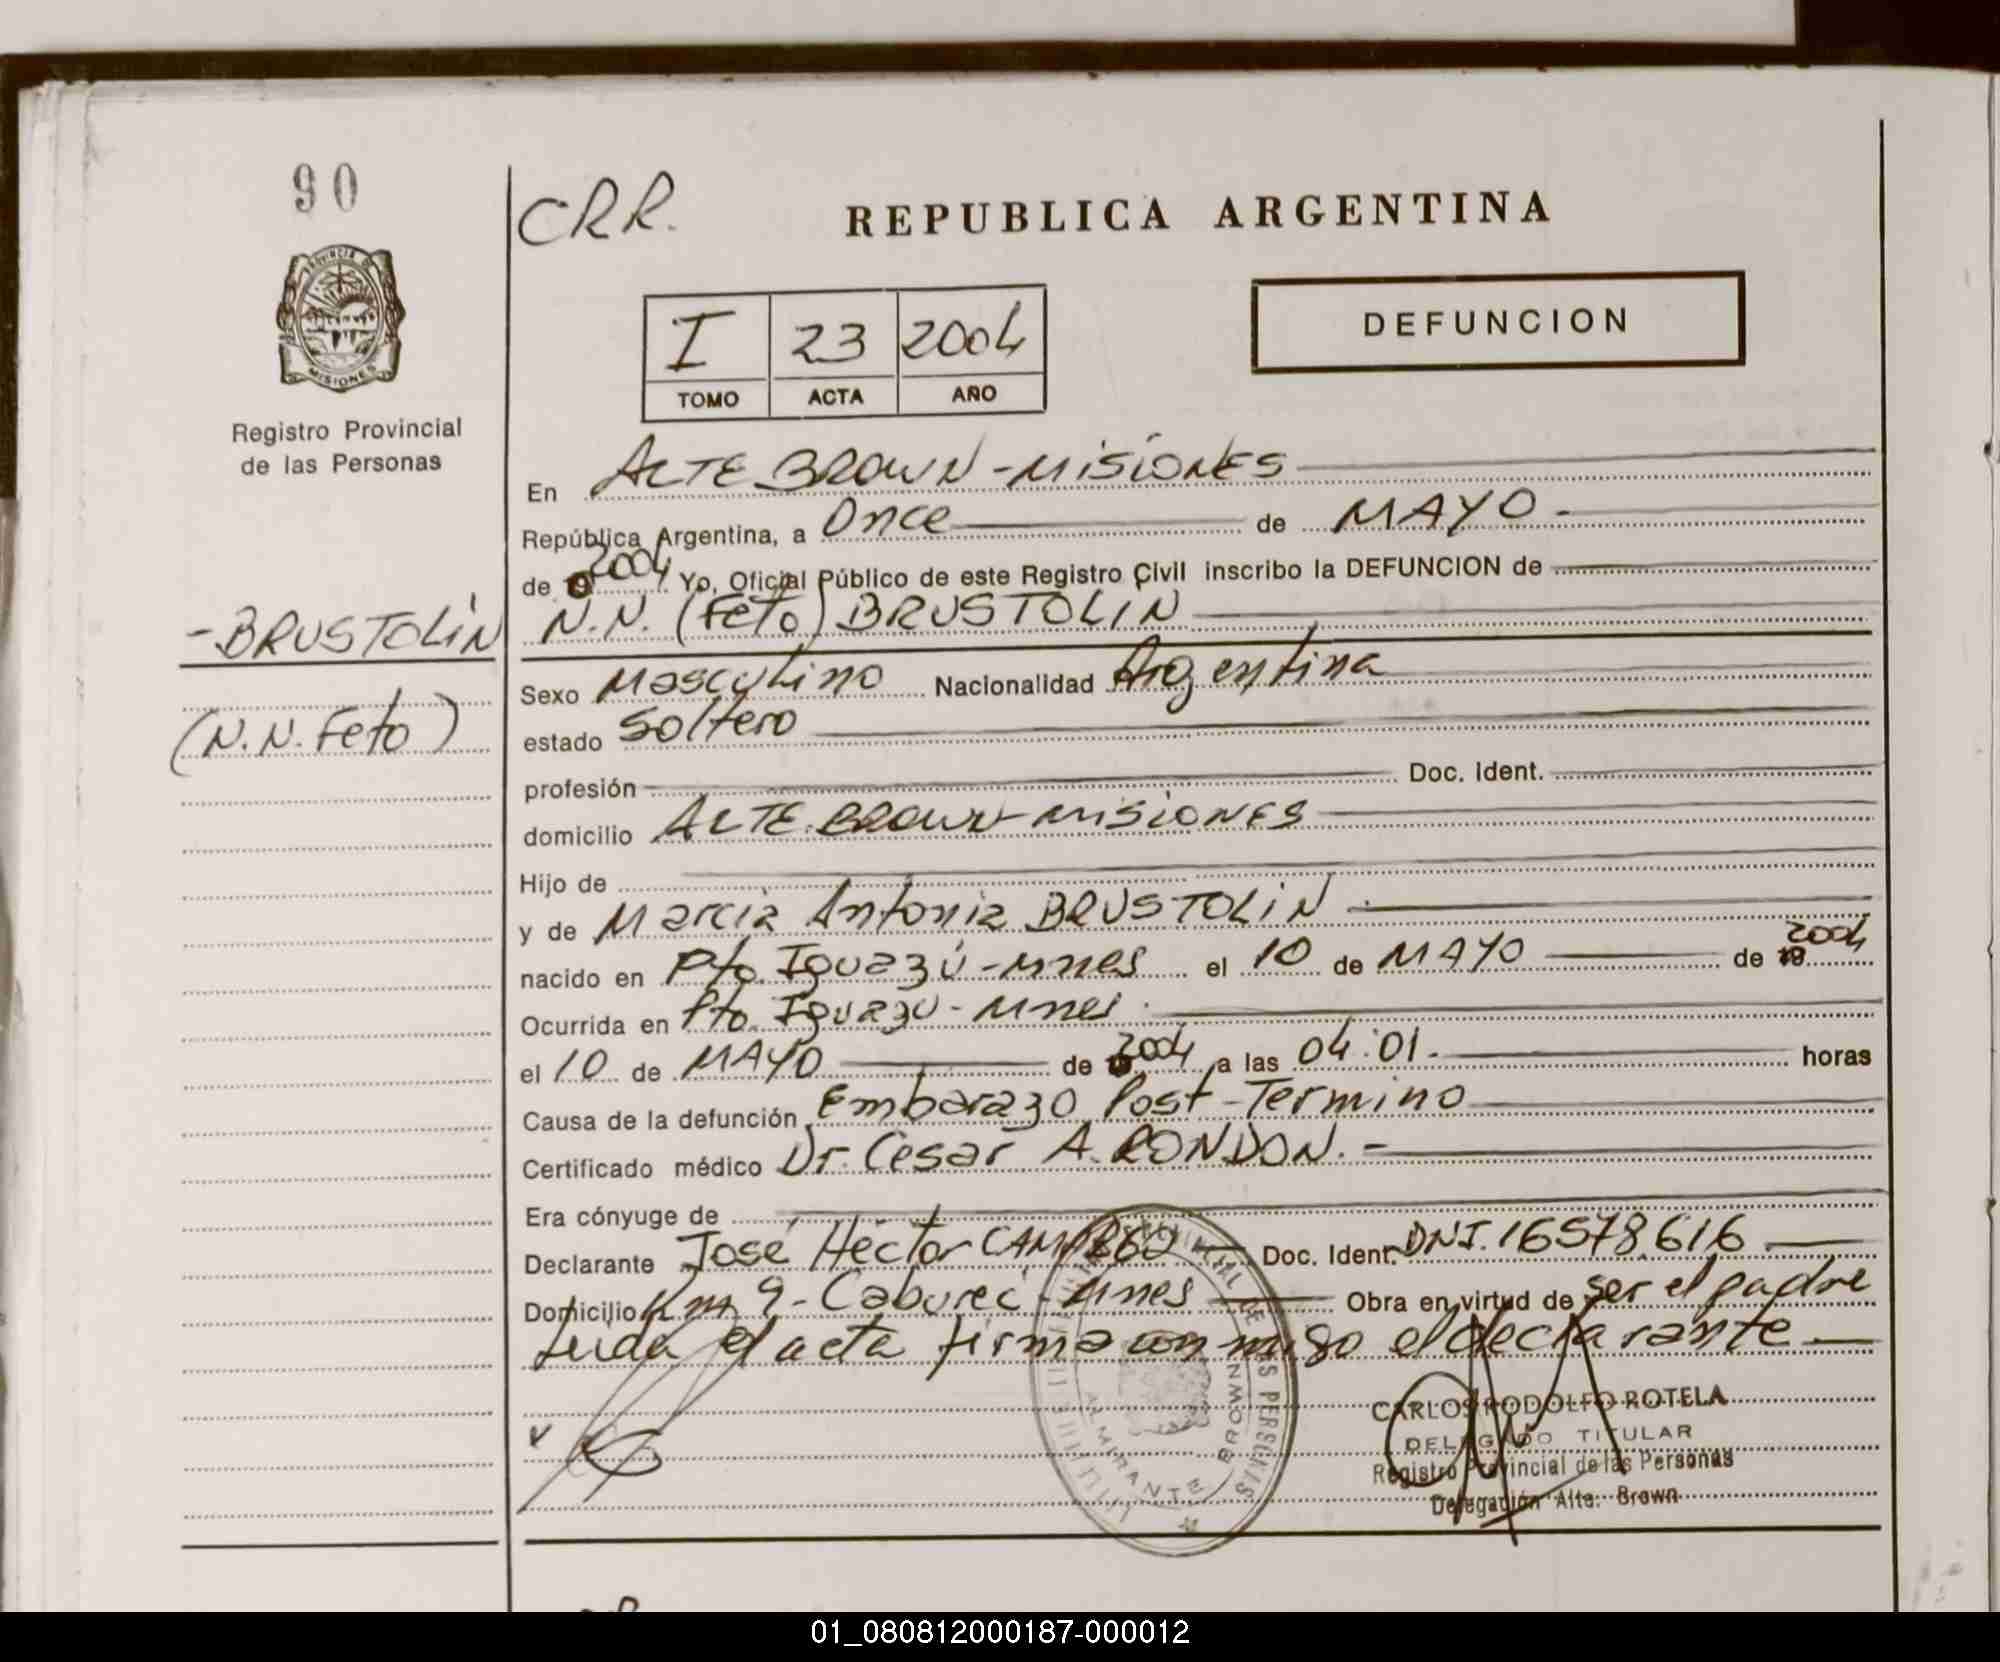 90
CRR.
REPUBLICA ARGENTINA
PROVINCIA DE
MISIONES
Registro Provincial
de las Personas
I 23 2004
TOMO ACTA AÑO
DEFUNCION
En ALTE BROWN - MISIONES
República Argentina, a Once de MAYO -
de 2004 Yo, Oficial Público de este Registro Civil inscribo la DEFUNCION de
N.N. (Feto) BRUSTOLIN
- BRUSTOLIN
(N.N. Feto)
Sexo Masculino Nacionalidad Argentina
estado Soltero
profesión Doc. Ident.
domicilio ALTE. BROWN - MISIONES
Hijo de
y de Marcia Antonia BRUSTOLIN
nacido en Pto. Iguazú - Mnes el 10 de MAYO de 2004
Ocurrida en Pto. Iguazú - Mnes.
el 10 de MAYO de 2004 a las 04:01. horas
Causa de la defunción Embarazo Post-Termino
Certificado médico Dr. Cesar A. RONDON. -
Era cónyuge de
Declarante José Héctor Doc. Ident. DNI. 16578616
Domicilio Km 9 - Caburei - Mnes Obra en virtud de ser el padre
Leida el acta firma con migo el declarante
CARLOS RODOLFO ROTELA
DELEGADO TITULAR
Registro Provincial de las Personas
Delegación Alte. Brown
PROVINCIAL DE LAS PERSONAS
ALMIRANTE BROWN
01_080812000187-000012